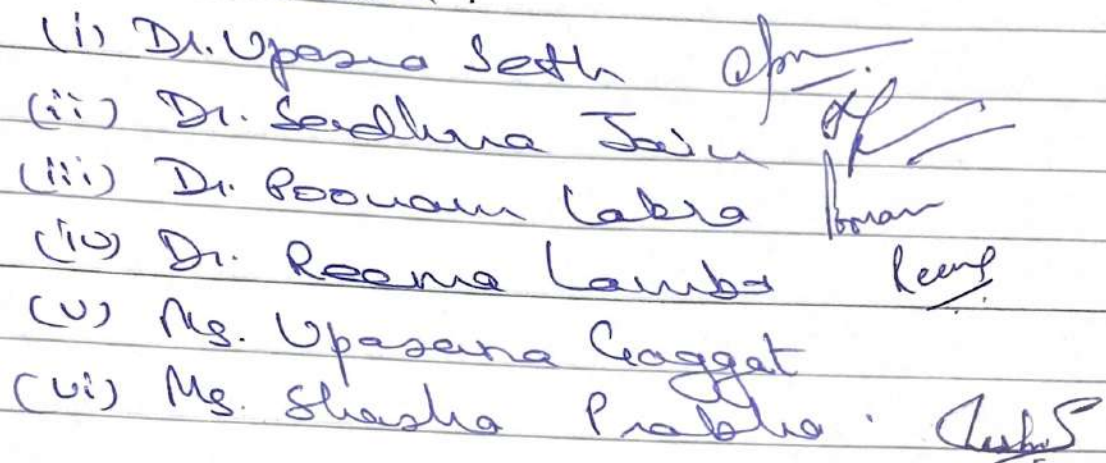 (i) Dr. Upasna Seth
(ii) Dr. Sadhna Jain
(iii) Dr. Poonam Labra Poonam
(iv) Dr. Reema Lamba Reema
(v) Ms. Upasana Gaggat
(vi) Ms. Shasha Prabha